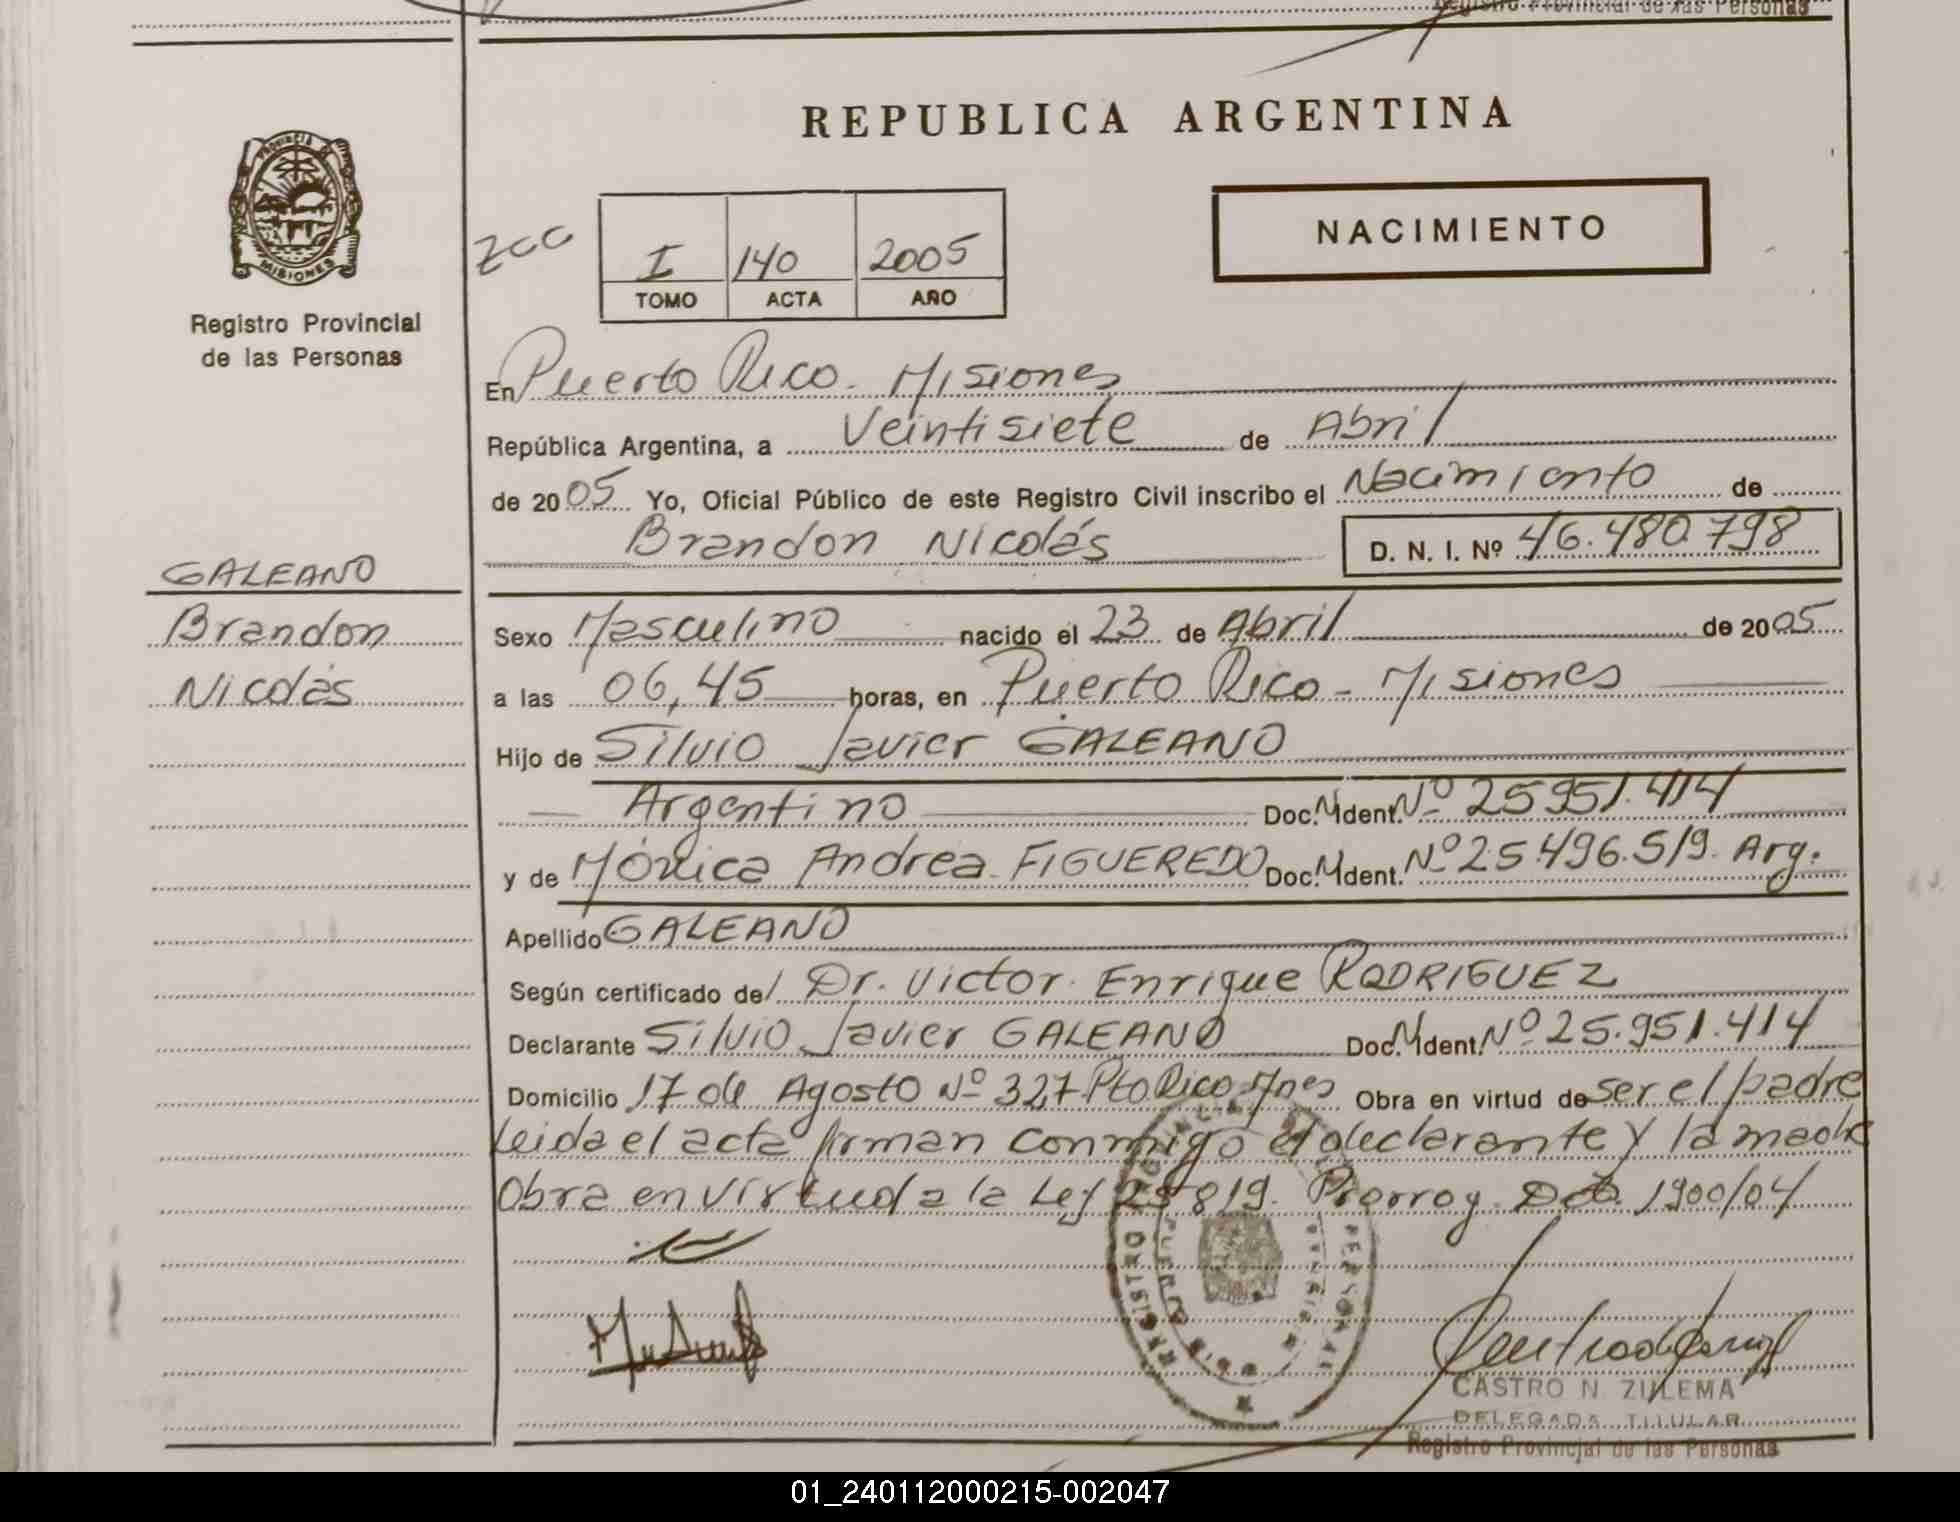 Registro Provincial de las Personas
REPUBLICA ARGENTINA
PROVINCIA DE
MISIONES
Registro Provincial
de las Personas
I 140 2005
TOMO ACTA AÑO
NACIMIENTO
En Puerto Rico. Misiones
República Argentina, a Veintisiete de Abril
de 2005 Yo, Oficial Público de este Registro Civil inscribo el Nacimiento de
Brandon Nicolás D. N. I. Nº 46.480.798
GALEANO
Brandon
Nicolás
Sexo Masculino nacido el 23 de Abril de 2005
a las 06,45 horas, en Puerto Rico - Misiones
Hijo de Silvio Javier GALEANO
Argentino Doc. N Ident. Nº 25951.414
y de Mónica Andrea FIGUEREDO Doc. N Ident. Nº 25.496.519. Arg.
Apellido GALEANO
Según certificado del Dr. Victor Enrique RODRIGUEZ
Declarante Silvio Javier GALEANO Doc. N Ident. Nº 25.951.414
Domicilio 17 de Agosto Nº 327 Pto Rico Mnes Obra en virtud de ser el padre
Leida el acta firman conmigo el declarante y la madre
Obra en virtud a la Ley 25819. Prorrog. Dto. 1900/04
CASTRO N. ZULEMA
DELEGADA TITULAR
Registro Provincial de las Personas
01_240112000215-002047